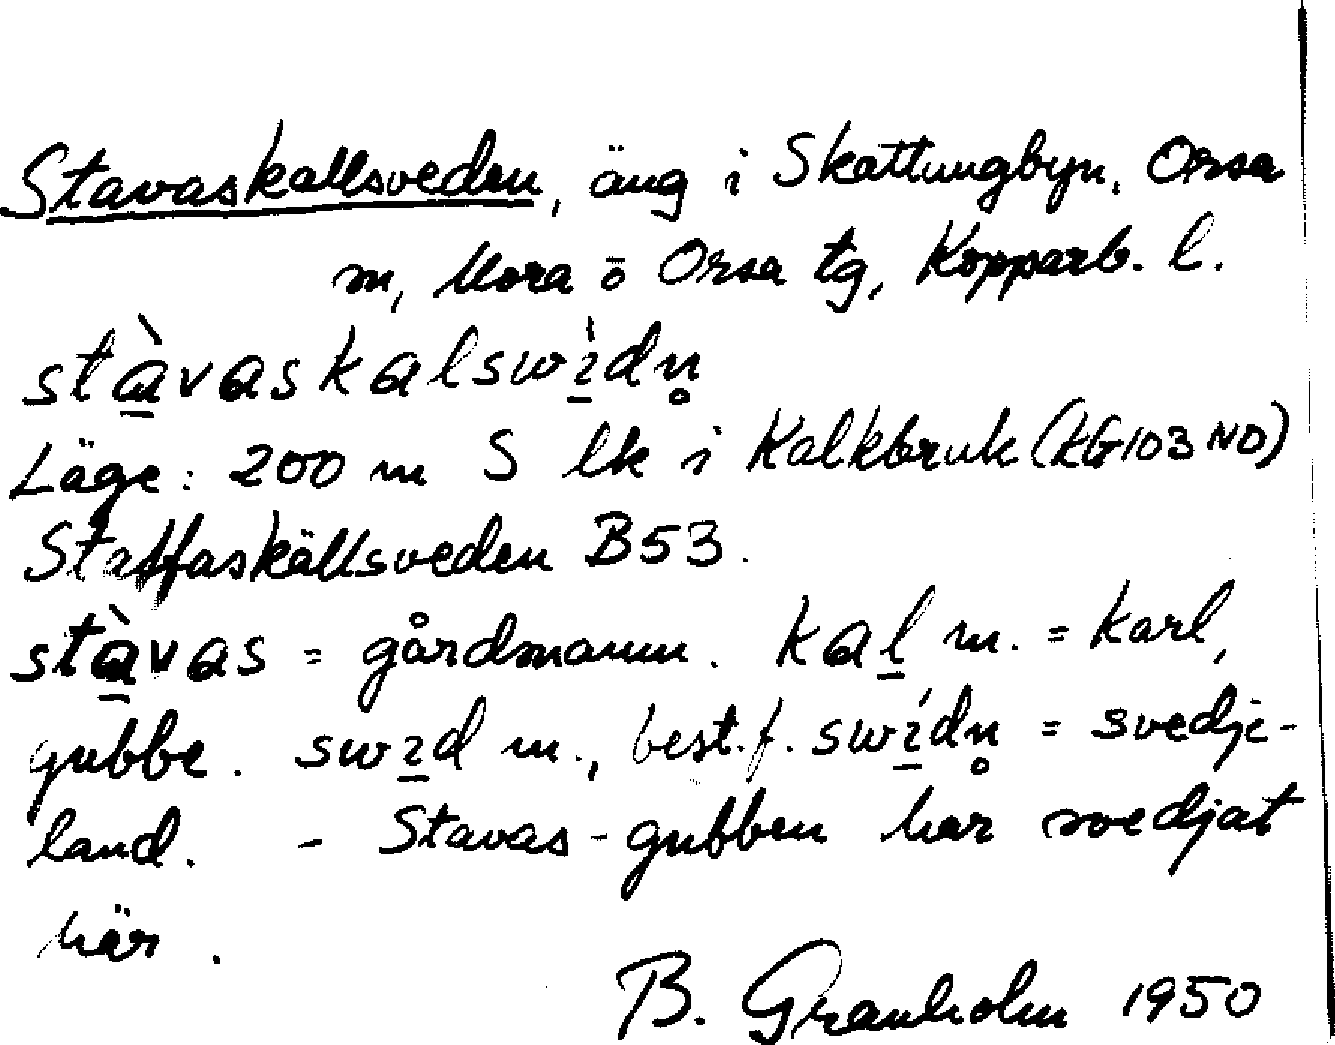 Stavaskallsveden, äng i Skattungbyn, Orsa
m, Mora o Orsa tg, Kopparb. l.
stàvaskalswìdn̥
Läge: 200 m S lk i Kalkbruk (LG103 NO)
Staffaskällsveden B53.
stàvas = gårdmann. kal m. = karl,
gubbe. swid m., best. f. swídn̥ = svedje-
land. - Stavas-gubben har svedjat
här.
B. Granholm 1950